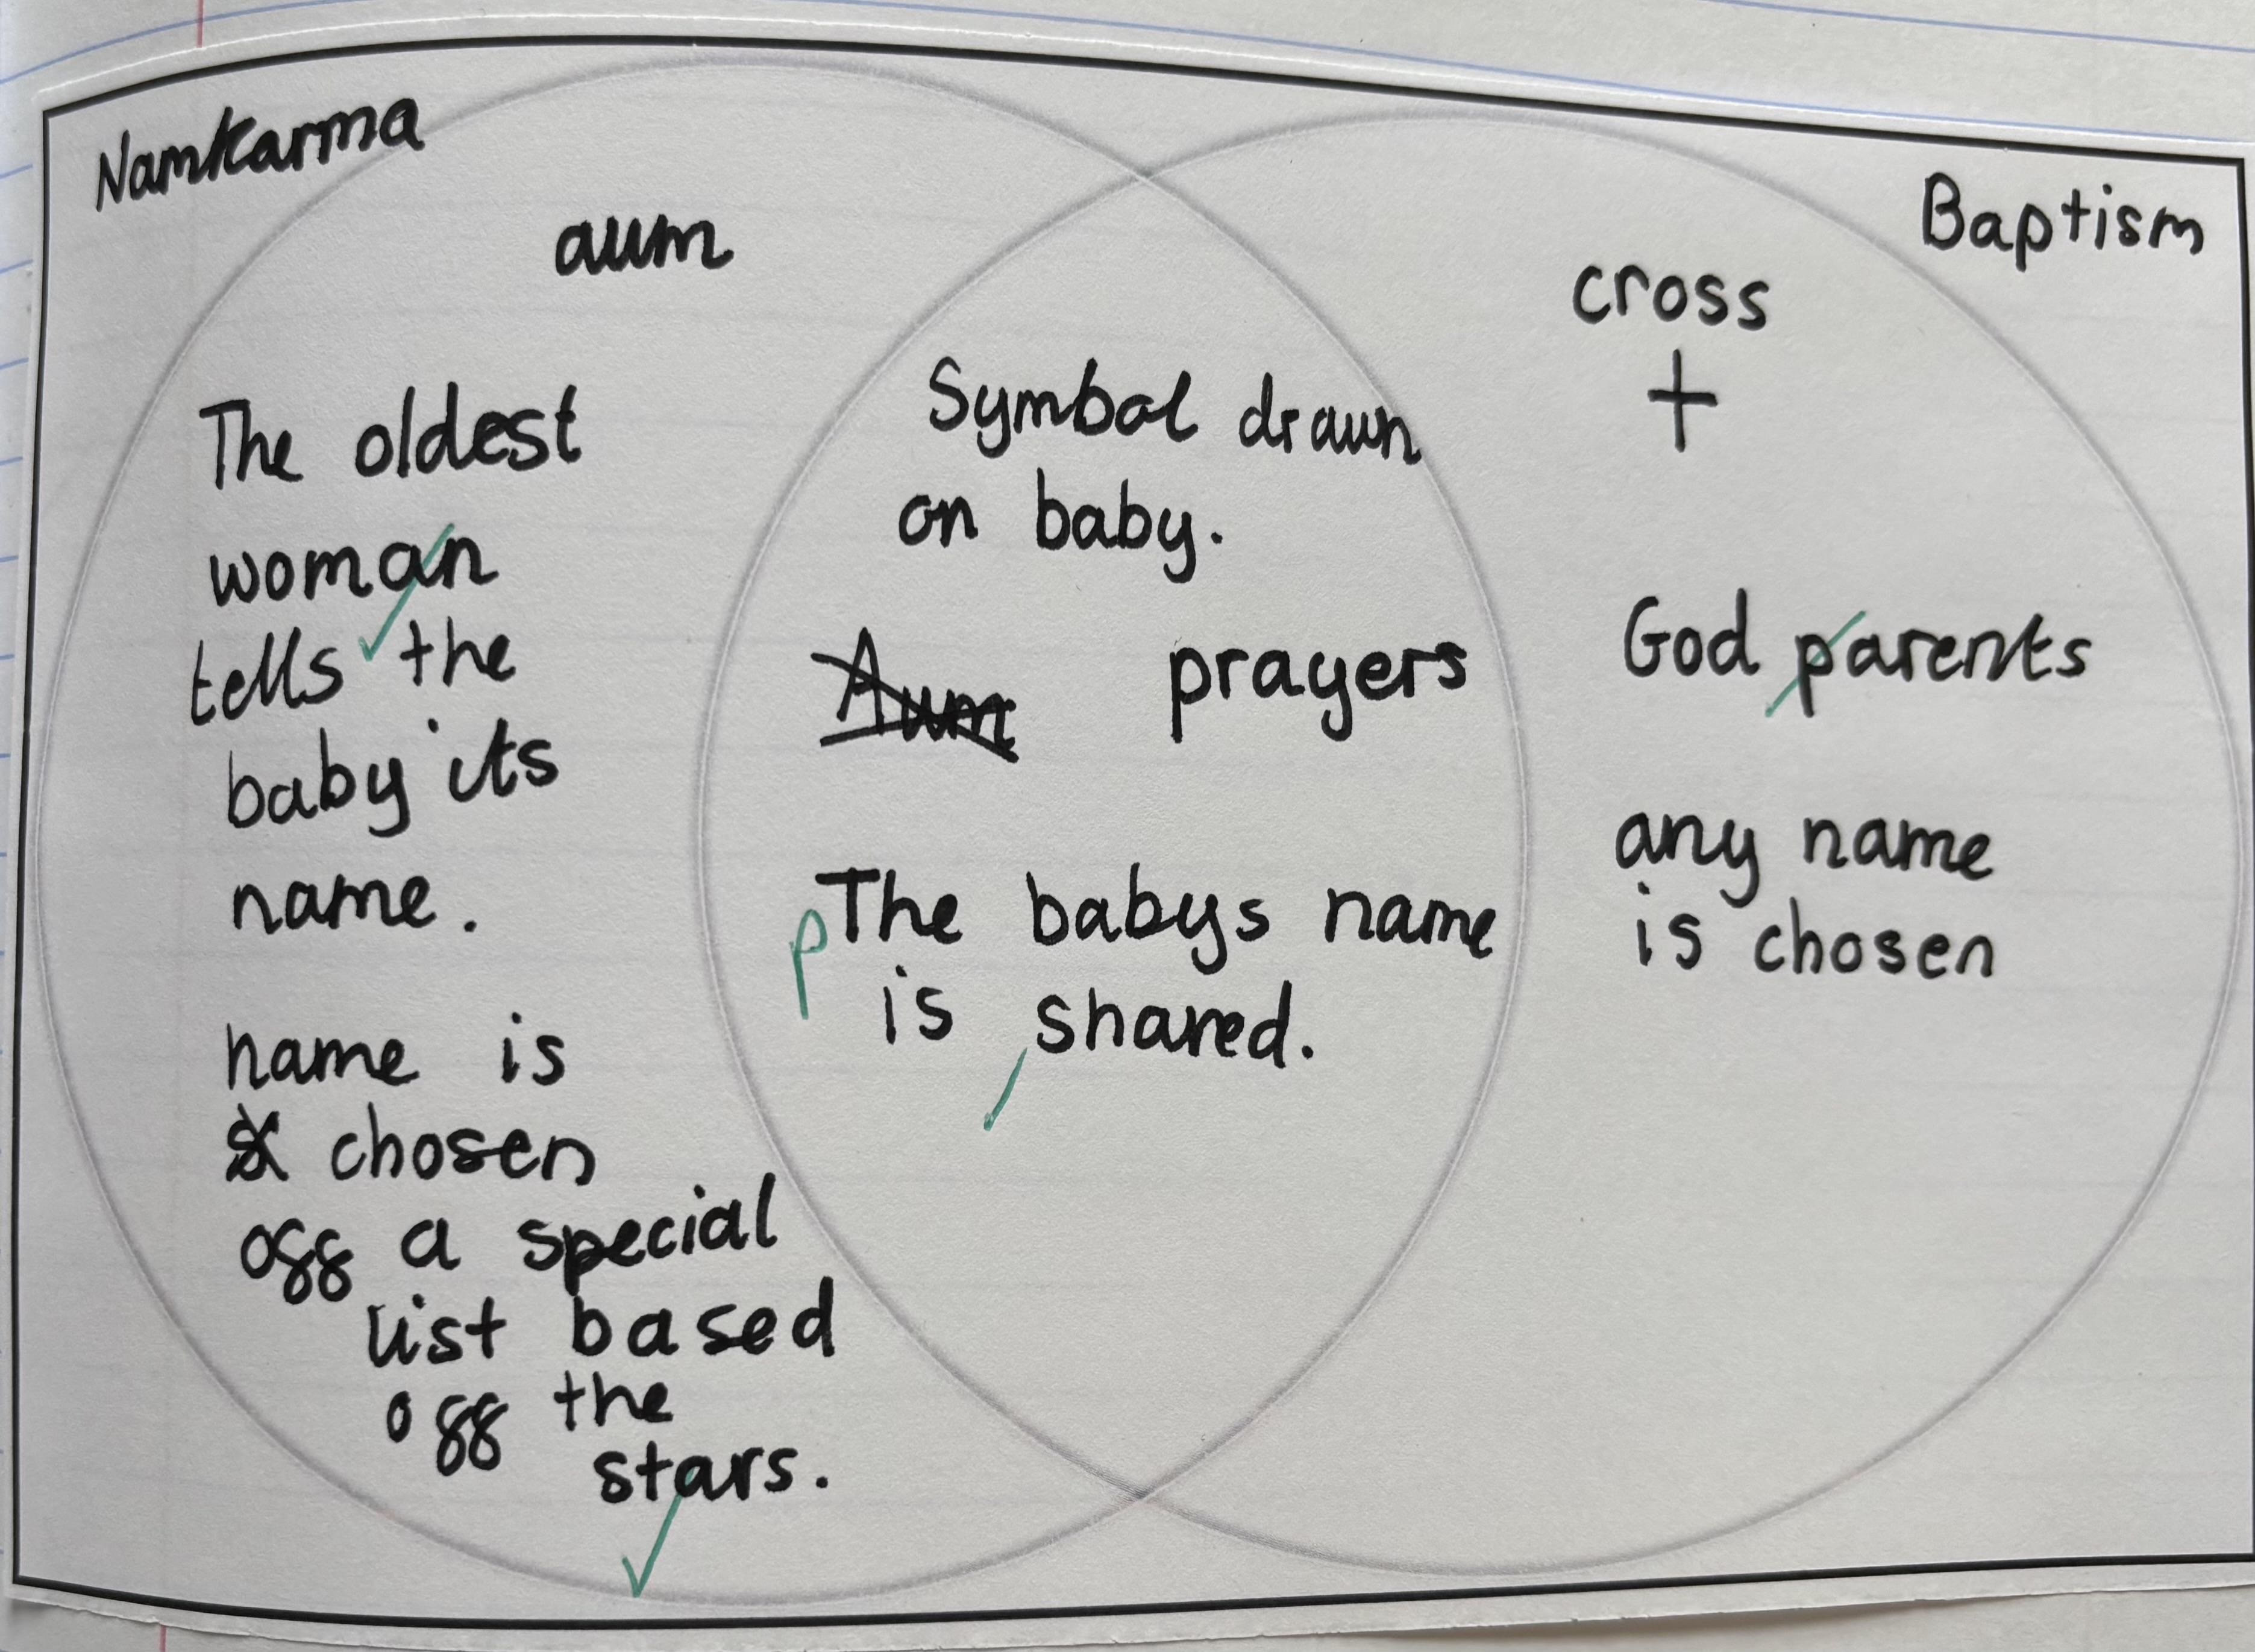 Namkarma
aum
The oldest
woman
tells the
baby its
name.
name is
chosen
off a special
list based
off the
stars.
Symbol drawn
on baby.
Aum prayers
p
The babys name
is shared.
Baptism
cross
+
God parents
any name
is chosen